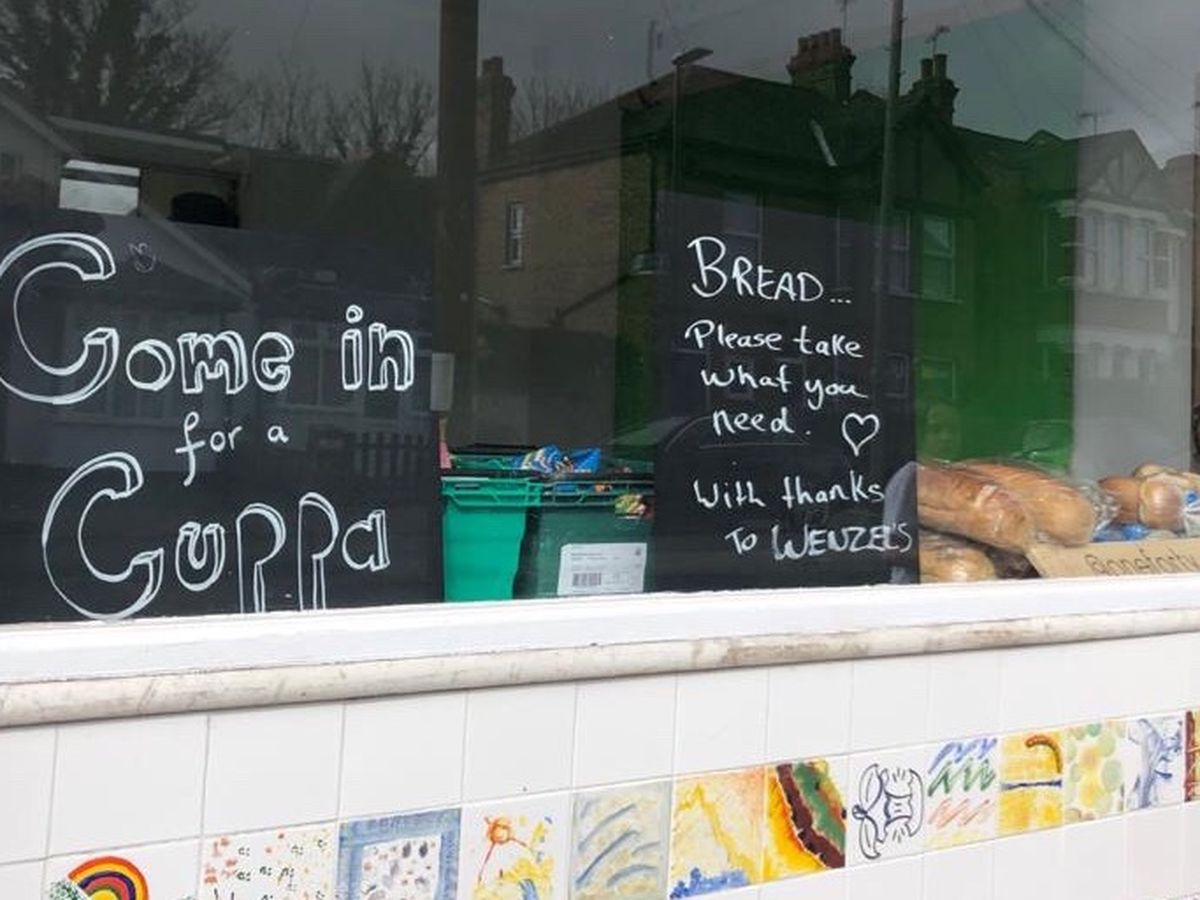 Come in
for a
Cuppa
BREAD...
Please take
what you
need. ♡
With thanks
To WENZEL'S